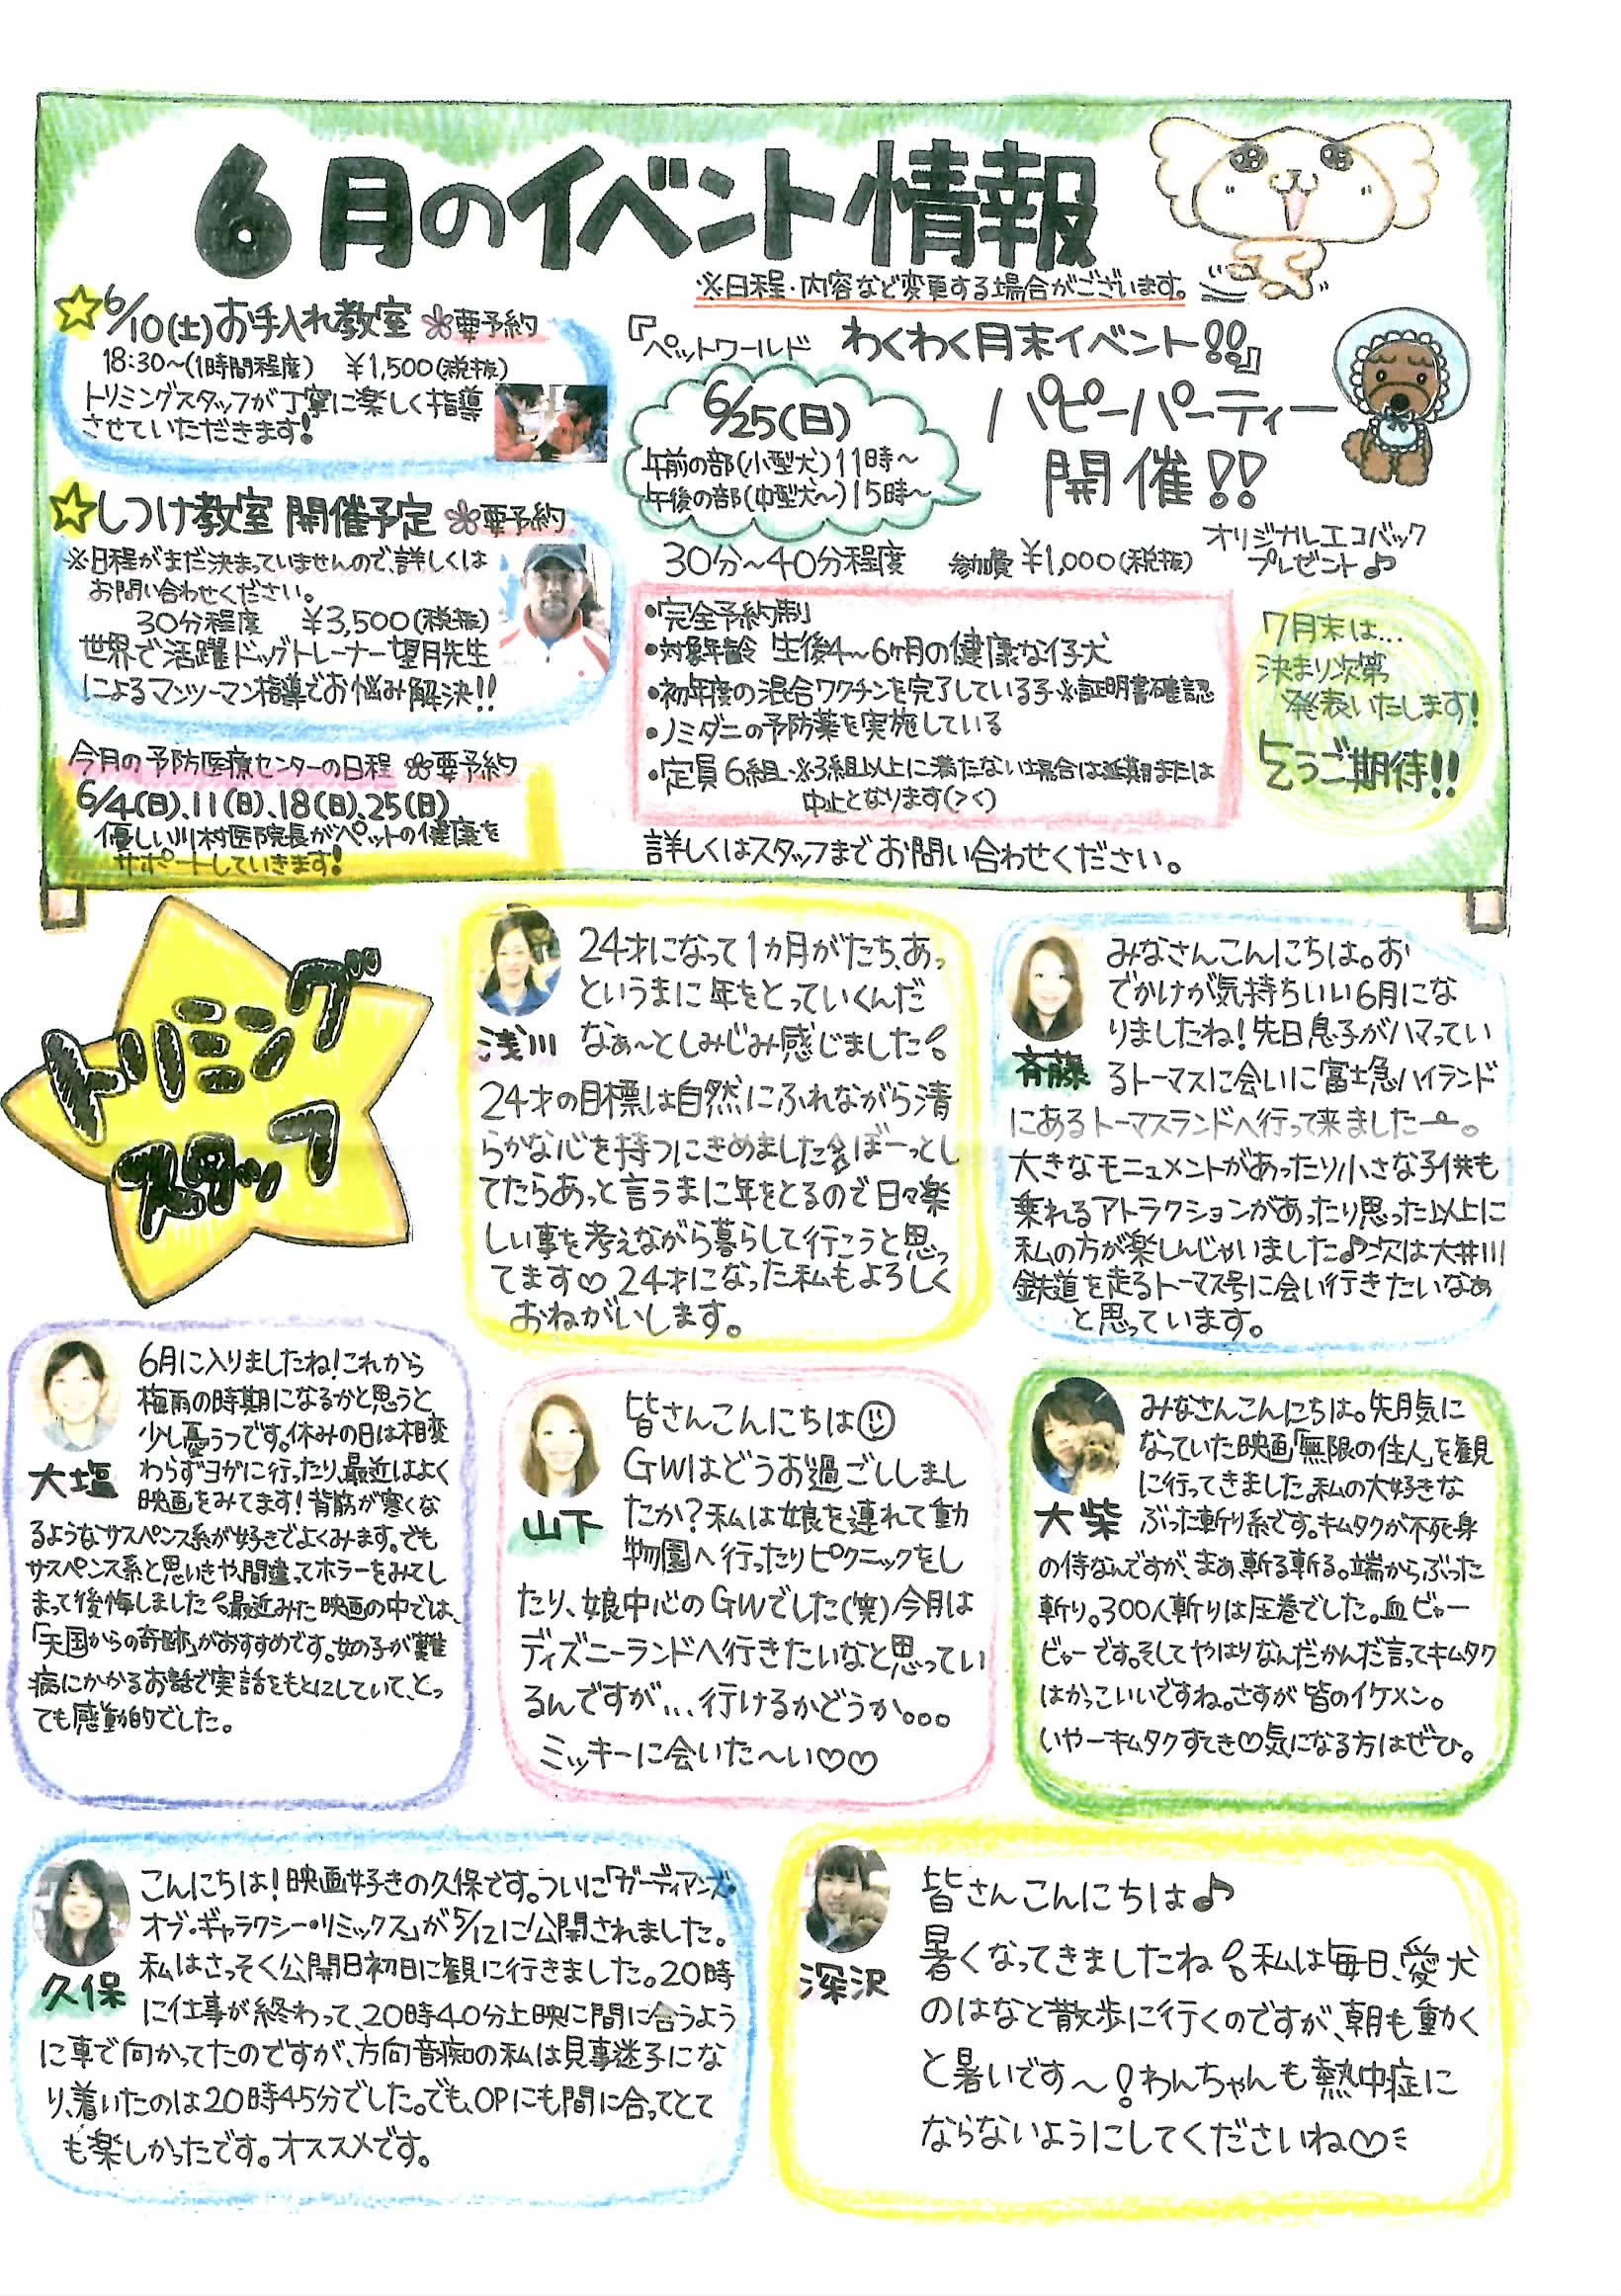 6月のイベント情報
※日程・内容など変更する場合がございます。
☆6/10(土)お手入れ教室 ❀要予約
18:30〜(1時間程度) ¥1,500(税抜)
トリミングスタッフが丁寧に楽しく指導
させていただきます!
☆しつけ教室 開催予定 ❀要予約
※日程がまだ決まっていませんので、詳しくは
お問い合わせください。
30分程度 ¥3,500(税抜)
世界で活躍ドッグトレーナー望月先生
によるマンツーマン指導でお悩み解決!!
今月の予防医療センターの日程 ❀要予約
6/4(日)、11(日)、18(日)、25(日)
優しい川村医院長がペットの健康を
サポートしていきます!
『ペットワールド わくわく月末イベント!!』
6/25(日)
午前の部(小型犬)11時〜
午後の部(中型犬〜)15時〜
パピーパーティー
開催!!
30分〜40分程度 参加費 ¥1,000(税抜)
オリジナルエコバック
プレゼント♪
・完全予約制
・対象年齢 生後4〜6ヶ月の健康な仔犬
・初年度の混合ワクチンを完了している子※証明書確認
・ノミダニの予防薬を実施している
・定員6組 ※3組以上に満たない場合は延期または
中止となります(><)
詳しくはスタッフまでお問い合わせください。
7月末は...
決まり次第
発表いたします!
乞うご期待!!
トリミング
スタッフ
浅川
24才になって1ヵ月がたち、あっ
というまに年をとっていくんだ
なぁ〜としみじみ感じました
24才の目標は自然にふれながら清
らかな心を持つにきめました ぼーっとし
てたらあっと言うまに年をとるので日々楽
しい事を考えながら暮らして行こうと思っ
てます♡24才になった私もよろしく
おねがいします。
斉藤
みなさんこんにちは。お
でかけが気持ちいい6月にな
りましたね!先日息子がハマってい
るトーマスに会いに富士急ハイランド
にあるトーマスランドへ行って来ましたー。
大きなモニュメントがあったり小さな子供も
乗れるアトラクションがあったり思った以上に
私の方が楽しんじゃいました♪次は大井川
鉄道を走るトーマス号に会い行きたいなぁ
と思っています。
大塩
6月に入りましたね!これから
梅雨の時期になるかと思うと
少し憂うつです。休みの日は相変
わらずヨガに行ったり、最近はよく
映画をみてます!背筋が寒くな
るようなサスペンス系が好きでよくみます。でも
サスペンス系と思いきや、間違ってホラーをみてし
まって後悔しました 最近みた映画の中では、
「天国からの奇跡」がおすすめです。女の子が難
病にかかるお話で実話をもとにしていて、とっ
ても感動的でした。
山下
皆さんこんにちは☺
GWはどうお過ごししまし
たか?私は娘を連れて動
物園へ行ったりピクニックをし
たり、娘中心のGWでした(笑)今月は
ディズニーランドへ行きたいなと思ってい
るんですが...行けるかどうか。。。
ミッキーに会いた〜い♡♡
大柴
みなさんこんにちは。先月気に
なっていた映画「無限の住人」を観
に行ってきました。私の大好きな
ぶった斬り系です。キムタクが不死身
の侍なんですが、まぁ、斬る斬る。端からぶった
斬り。300人斬りは圧巻でした。血ビャー
ビャーです。そしてやはりなんだかんだ言ってキムタク
はかっこいいですね。さすが皆のイケメン。
いやーキムタクすてき♡気になる方はぜひ。
久保
こんにちは!映画好きの久保です。ついに「ガーディアンズ・
オブ・ギャラクシー・リミックス」が5/12に公開されました。
私はさっそく公開日初日に観に行きました。20時
に仕事が終わって、20時40分上映に間に合うよう
に車で向かってたのですが、方向音痴の私は見事迷子にな
り、着いたのは20時45分でした。でも、OPにも間に合ってとて
も楽しかったです。オススメです。
深沢
皆さんこんにちは♪
暑くなってきましたね 私は毎日、愛犬
のはなと散歩に行くのですが、朝も動く
と暑いです〜!わんちゃんも熱中症に
ならないようにしてくださいね♡